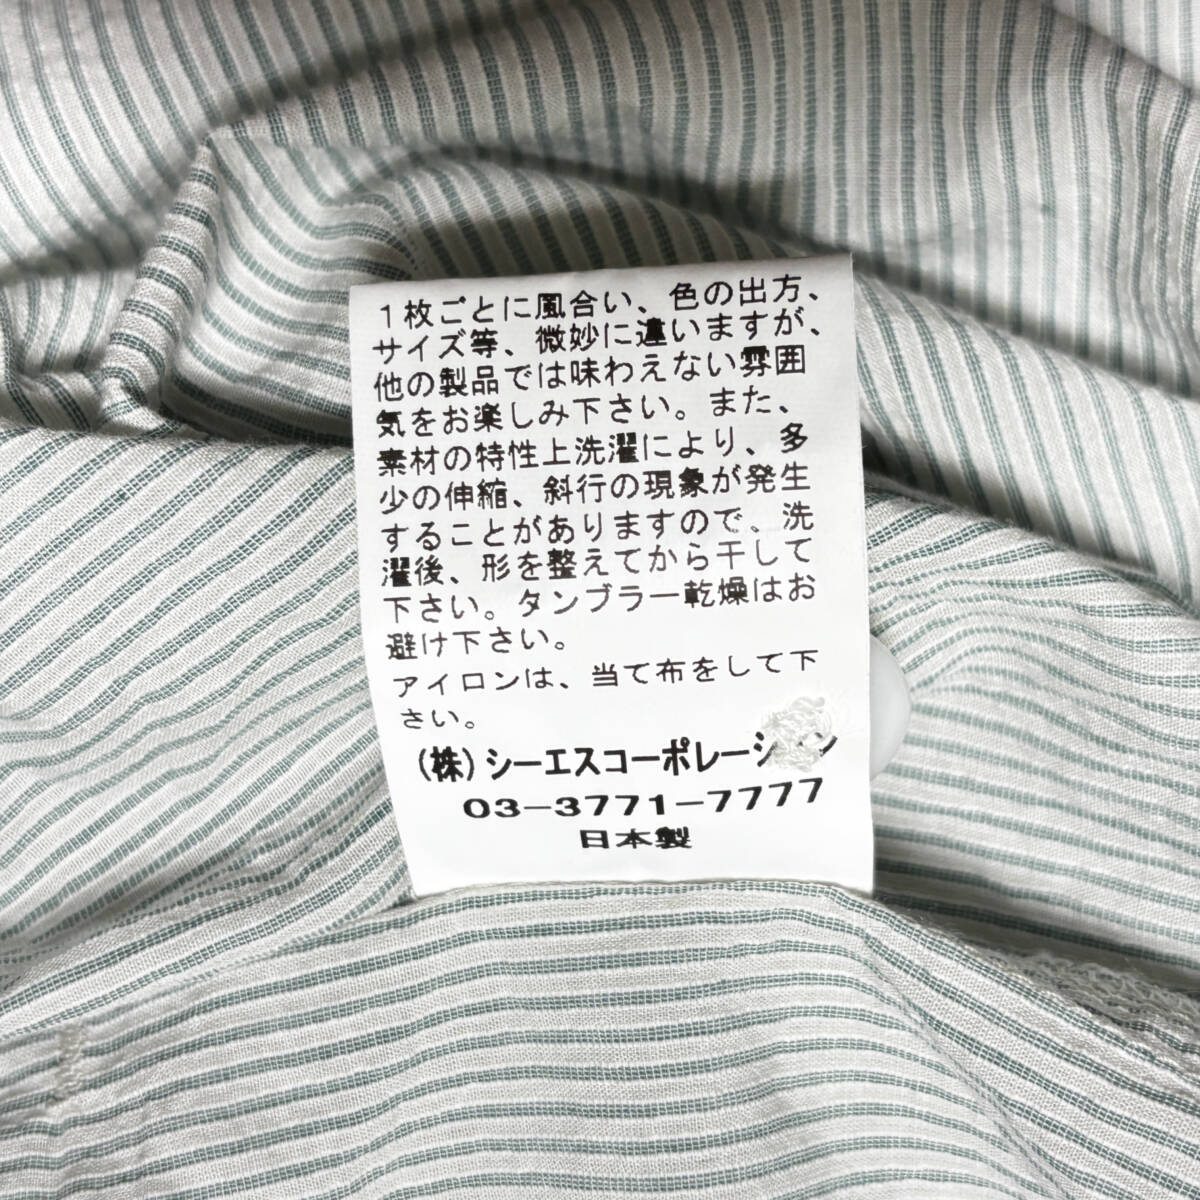 1枚ごとに風合い、色の出方、
サイズ等、微妙に違いますが、
他の製品では味わえない雰囲
気をお楽しみ下さい。また、
素材の特性上洗濯により、多
少の伸縮、斜行の現象が発生
することがありますので、洗
濯後、形を整えてから干して
下さい。タンブラー乾燥はお
避け下さい。
アイロンは、当て布をして下
さい。
(株)シーエスコーポレーション
03-3771-7777
日本製